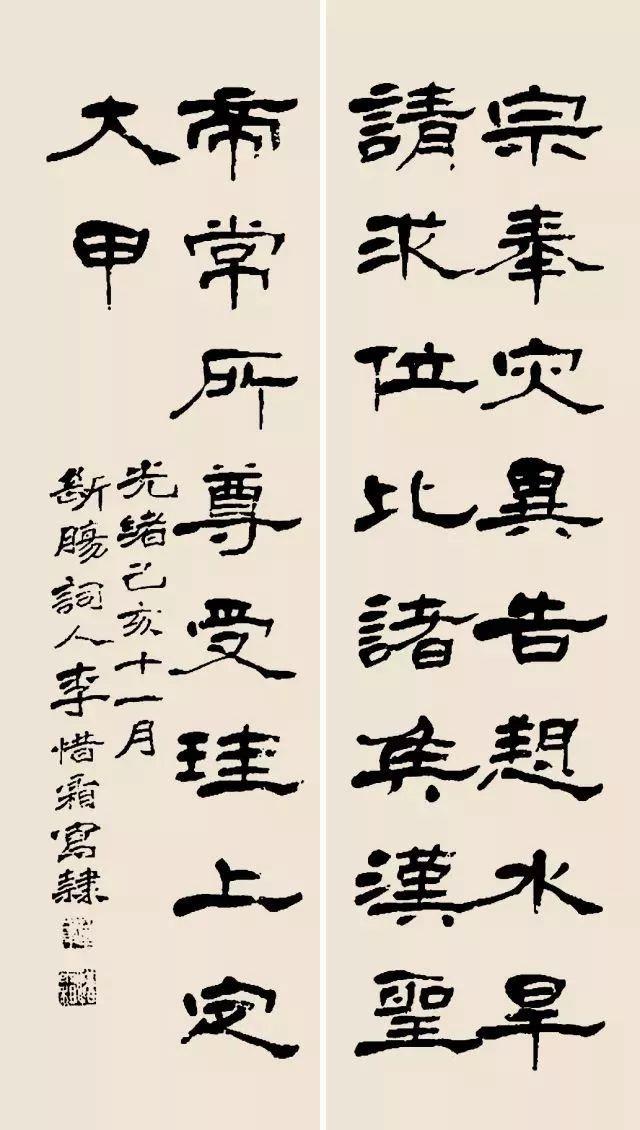 宗奉灾異告水旱
請求位比諸矦漢聖
帝常所尊受珪上定
大甲
光緒己亥十一月
斷腸詞人李惜霜寫隸